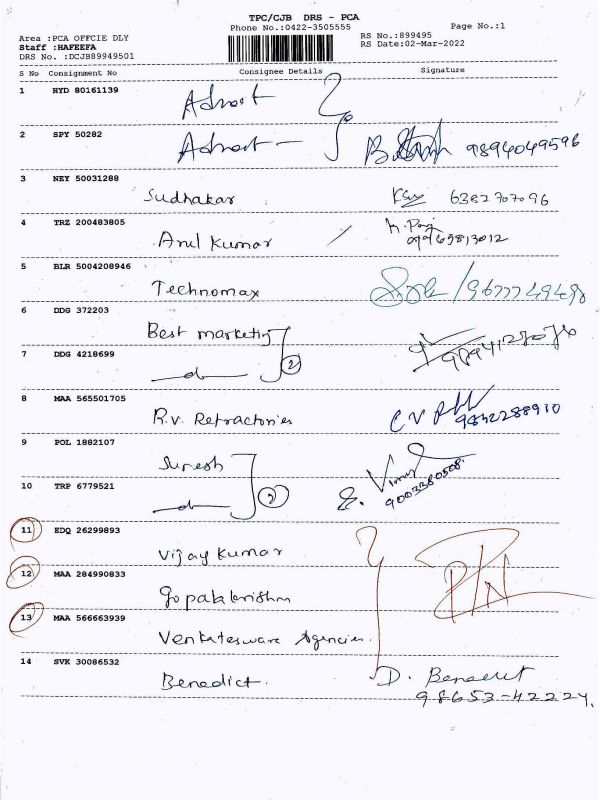 TPC/CJB DRS - PCA
Phone No.:0422-3505555 Page No.:1
Area :PCA OFFCIE DLY RS No.:899495
Staff :HAFEEFA RS Date:02-Mar-2022
DRS No. :DCJB89949501
S No Consignment No Consignee Details Signature
1 HYD 80161139
2 SPY 50282 9894049596
3 NEY 50031288 Sudhakar 6382707096
4 TRZ 200483805 Arul Kumar
5 BLR 5004208946 Technomax
6 DDG 372203 Best marketing
7 DDG 4218699 2
8 MAA 565501705 R.V. Refractories 9842288910
9 POL 1882107 Suresh
10 TRP 6779521 2 9003380508
11 EDQ 26299893 Vijay Kumar
12 MAA 284990833 gopalakrishnan
13 MAA 566663939 Venkateswara Agencies.
14 SVK 30086532 Benedict. D. Benedict
98653-42224,